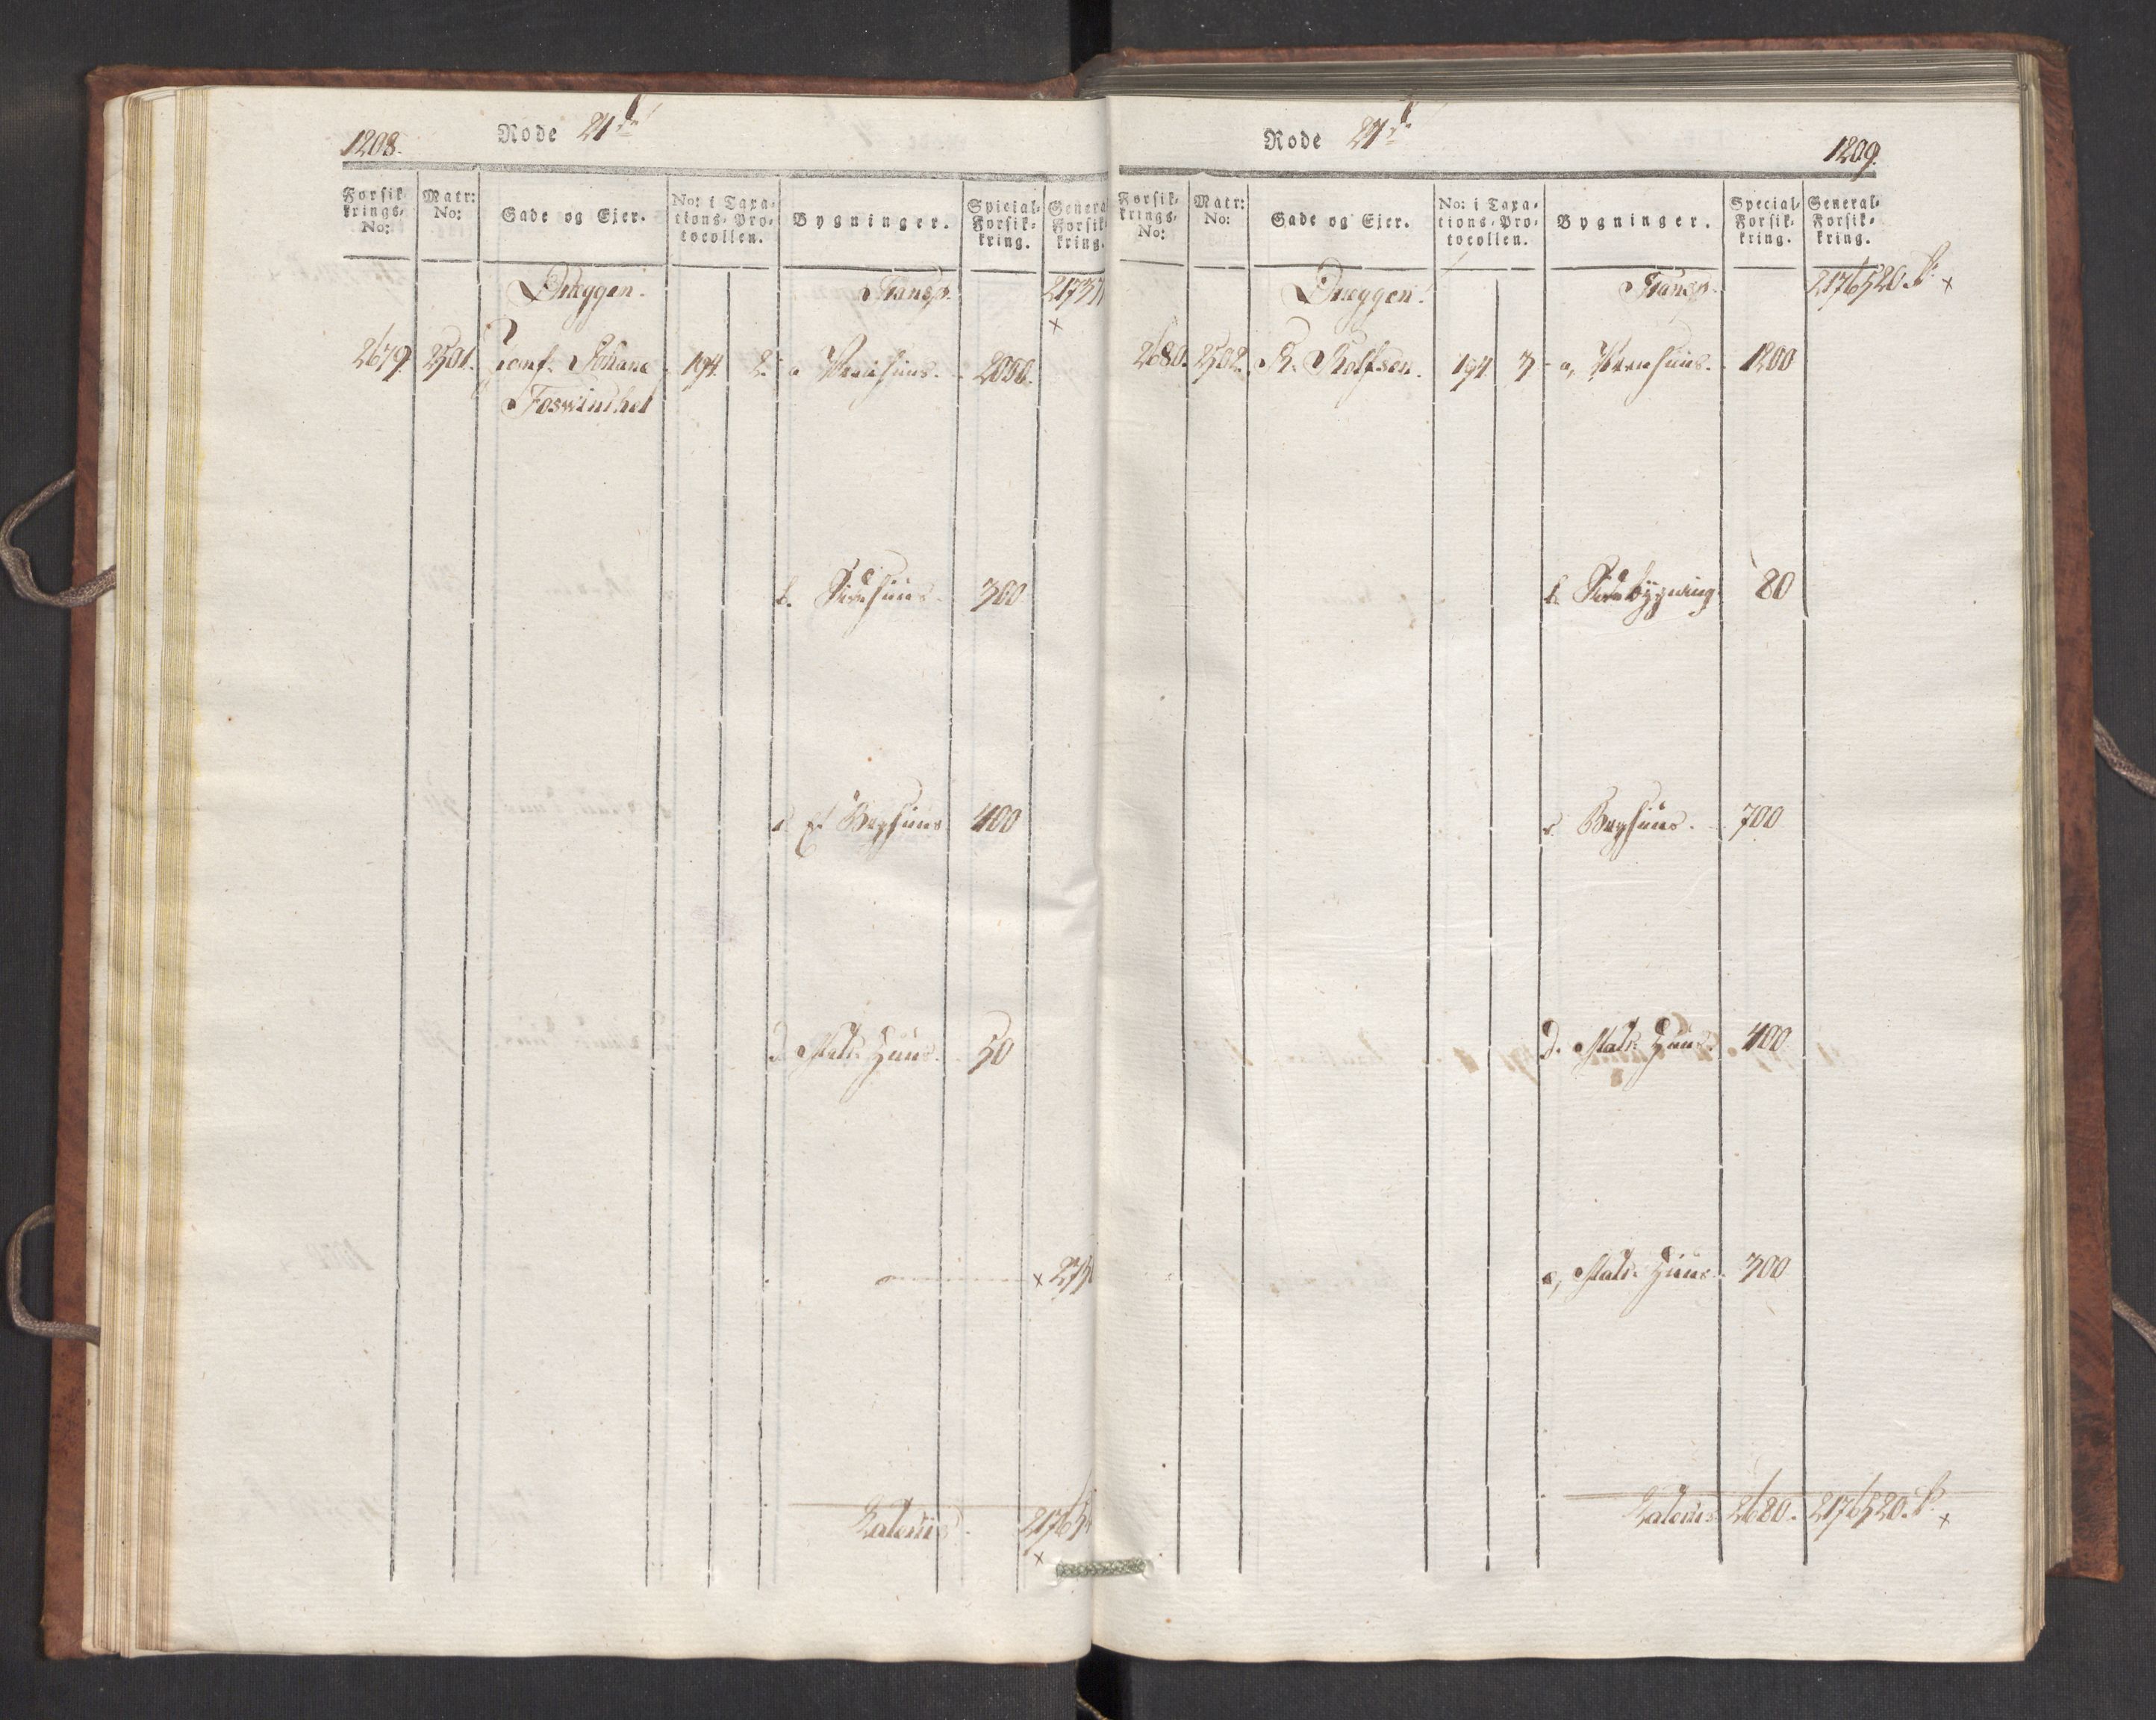 1208.
Rode 21de
Forsik-
krings-
No:
Matr:
No:
Gade og Ejer.
No: i Taxa-
tions-Pro-
tocollen.
Bygninger.
Special-
Forsik-
kring.
Genera
Forsik
kring.
Dræggen.
Transp.
21737
×
2679
2501.
Jomf. Johane
194.
2.
a
Vaaehuus.
2000.
Foswinchel
b.
Sidehuus.
300
c
Baghuus
400
d.
Matr. Huus.
50
×
275
Lateriis.
21765
×
Rode 21de
1209.
Forsik-
krings-
No:
Matr:
No:
Gade og Ejer.
No: i Taxa-
tions-Pro-
tocollen.
Bygninger.
Special-
Forsik-
kring.
General-
Forsik-
kring.
Dræggen.
Transp.
2176520.
×
2680.
2502.
R. Rolfsen.
194
3
a,
1200
b.
Sidebygning
80
c.
Baghuus.
700
d.
Matr. Huus.
400
e,
Matr. Huus.
300
Lateriis
2680.
2176520.
×